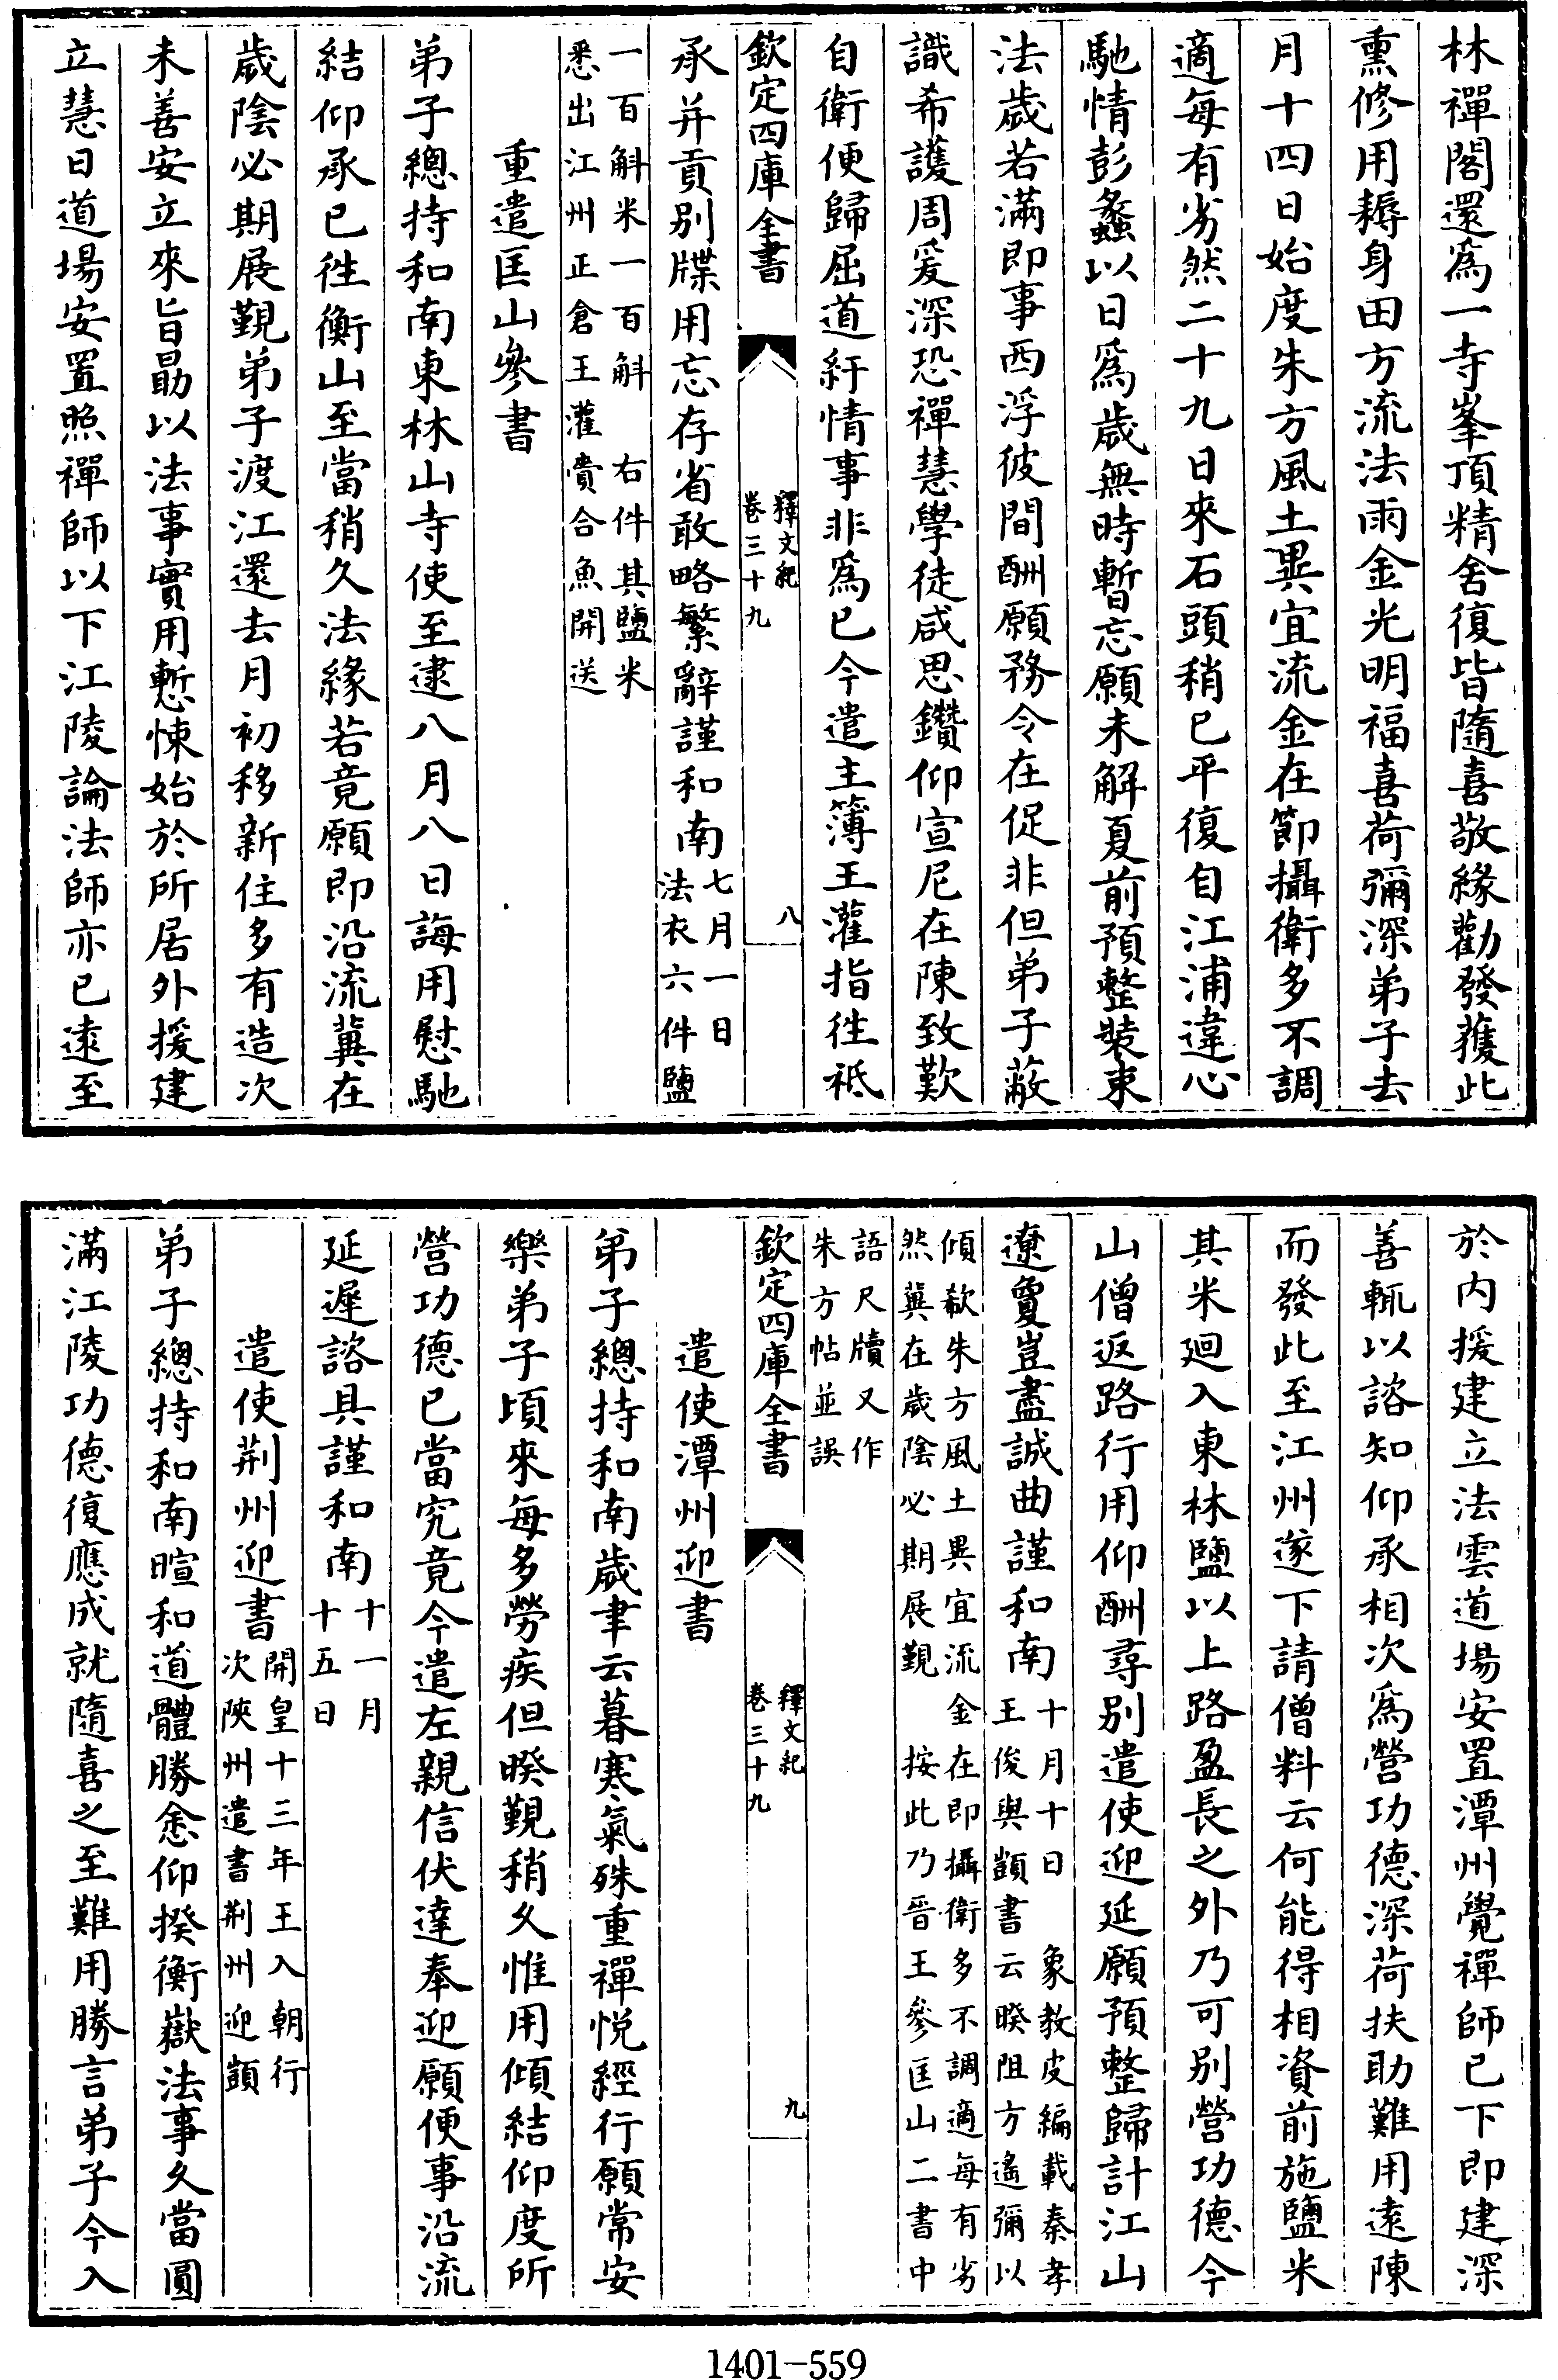 林禪閣還爲一寺峯頂精舍復皆隨喜敬緣勸發獲此
熏修用耨身田方流法雨金光明福喜荷彌深弟子去
月十四日始度朱方風土異宜流金在節攝衛多不調
適每有劣然二十九日來石頭稍已平復自江浦違心
馳情彭蠡以日爲歲無時暫忘願未解夏前預整裝東
法歲若滿即事西浮彼間酬願務令在促非但弟子蔽
識希護周爰深恐禪慧學徒咸思鑽仰宣尼在陳致歎
自衛便歸屈道紆情事非爲已今遣主簿王灌指徃祗
欽定四庫全書
釋文紀
卷三十九
八
承并貢别牒用忘存省敢略繁辭謹和南七月一日
法衣六件鹽
一百斛米一百斛 右件其鹽米
悉出江州正倉王灌賫合魚開送
重遣匡山參書
弟子總持和南東林山寺使至逮八月八日誨用慰馳
結仰承已徃衡山至當稍久法緣若竟願即沿流冀在
歲陰必期展覲弟子渡江還去月初移新住多有造次
未善安立來旨勗以法事實用慙悚始於所居外援建
立慧日道場安置照禪師以下江陵論法師亦已遠至
於内援建立法雲道場安置潭州覺禪師已下即建深
善輒以諮知仰承相次爲營功德深荷扶助難用遠陳
而發此至江州遂下請僧料云何能得相資前施鹽米
其米廻入東林鹽以上路盈長之外乃可别營功德今
山僧返路行用仰酬尋别遣使迎延願預整歸計江山
遼敻豈盡誠曲謹和南十月十日 象教皮編載秦孝
王俊與顗書云暌阻方遙彌以
傾欷朱方風土異宜流金在即攝衛多不調適每有劣
然冀在歲陰必期展覲 按此乃晉王參匡山二書中
語尺牘又作
朱方帖並誤
欽定四庫全書
釋文紀
卷三十九
九
遣使潭州迎書
弟子總持和南歲聿云暮寒氣殊重禪悦經行願常安
樂弟子頃來每多勞疾但暌覲稍久惟用傾結仰度所
營功德已當究竟今遣左親信伏達奉迎願便事沿流
延遲諮具謹和南十一月
十五日
遣使荆州迎書開皇十三年王入朝行
次陜州遣書荆州迎顗
弟子總持和南暄和道體勝悆仰揆衡嶽法事久當圓
滿江陵功德復應成就隨喜之至難用勝言弟子今入
1401-559